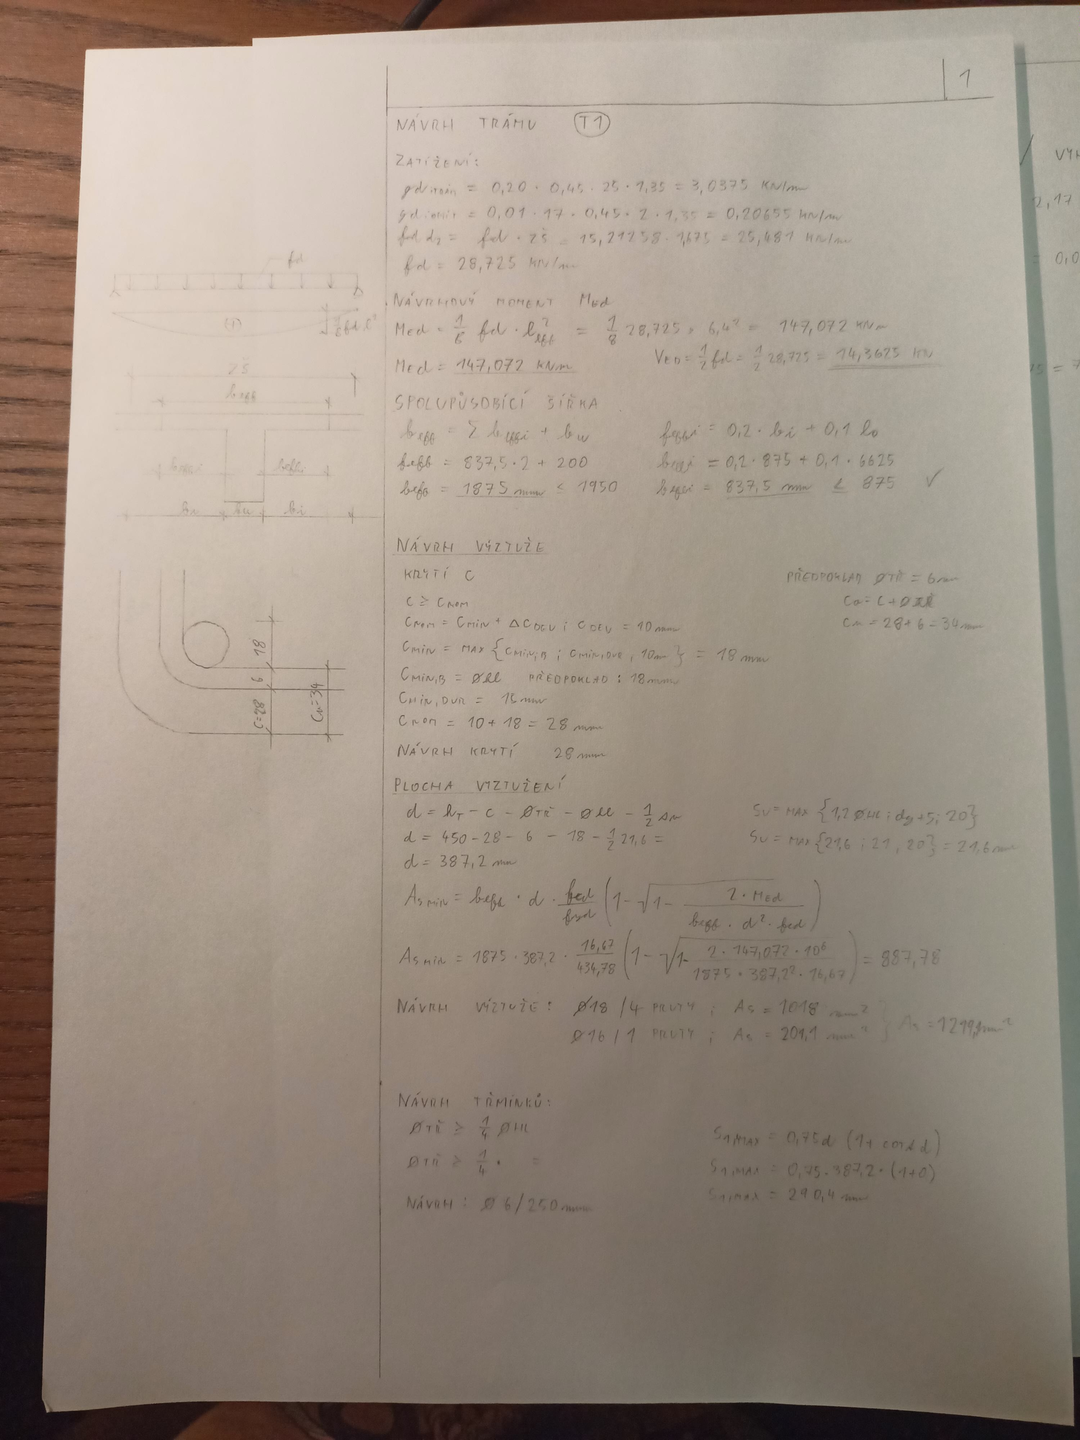 1
NÁVRH TRÁMU T1
ZATÍŽENÍ:
= 0,20 · 0,45 · 25 · 1,35 = 3,0375 KN/m
= 0,01 · 17 · 0,45 · 2 · 1,35 = 0,20655 KN/m
fd · ZŠ = 15,21258 · 1,675 = 25,481 KN/m
fd = 28,725 KN/m
fd
(+)
NÁVRHOVÝ MOMENT Med
Med = 1/8 fd · l²eff = 1/8 28,725 · 6,4² = 147,072 KNm
Med = 147,072 KNm
VED = 1/2 fd = 1/2 28,725 = 14,3625 KN
ZŠ
beff
SPOLUPŮSOBÍCÍ ŠÍŘKA
beff = Σ beffi + bw
beff = 837,5 · 2 + 200
beff = 1875 mm < 1950
beffi = 0,2 · bi + 0,1 l0
beffi = 0,2 · 875 + 0,1 · 6625
beffi = 837,5 mm ≤ 875 ✓
beffi beffi
bi bw bi
NÁVRH VÝZTUŽE
KRYTÍ C
C ≥ CNOM
CNOM = CMIN + ΔCDEV ; CDEV = 10mm
CMIN = MAX {CMIN,B ; CMIN,DUR, 10mm} = 18 mm
CMIN,B = Øll PŘEDPOKLAD : 18mm
CMIN,DUR = 15mm
CNOM = 10 + 18 = 28 mm
NÁVRH KRYTÍ 28mm
PŘEDPOKLAD ØTŘ = 6mm
= 28 + 6 = 34mm
18
6
C=28
=34
PLOCHA VYZTUŽENÍ
d = hT - C - ØTŘ - Øll - 1/2
d = 450 - 28 - 6 - 18 - 1/2 21,6 =
d = 387,2 mm
Sv = MAX {1,2 Øll ; dg+5 ; 20}
Sv = MAX {21,6 ; 21, 20} = 21,6mm
As,MIN = beff · d · fcd/fyd (1 - √1 - 2 · Med / beff · d² · fcd)
As,MIN = 1875 · 387,2 · 16,67/434,78 (1 - √1 - 2 · 147,072 · 10⁶ / 1875 · 387,2² · 16,67) = 887,78
NÁVRH VÝZTUŽE: Ø18 / 4 PRUTY ; As = 1018 mm²
Ø16 / 1 PRUTY ; As = 201,1
NÁVRH TŘMÍNKŮ:
ØTŘ ≥ 1/4 Øll
ØTŘ ≥ 1/4 · =
NÁVRH: Ø 6/250mm
S1,MAX = 0,75d (1+ d)
S1,MAX = 0,75 · 387,2 · (1+0)
S1,MAX = 290,4 mm